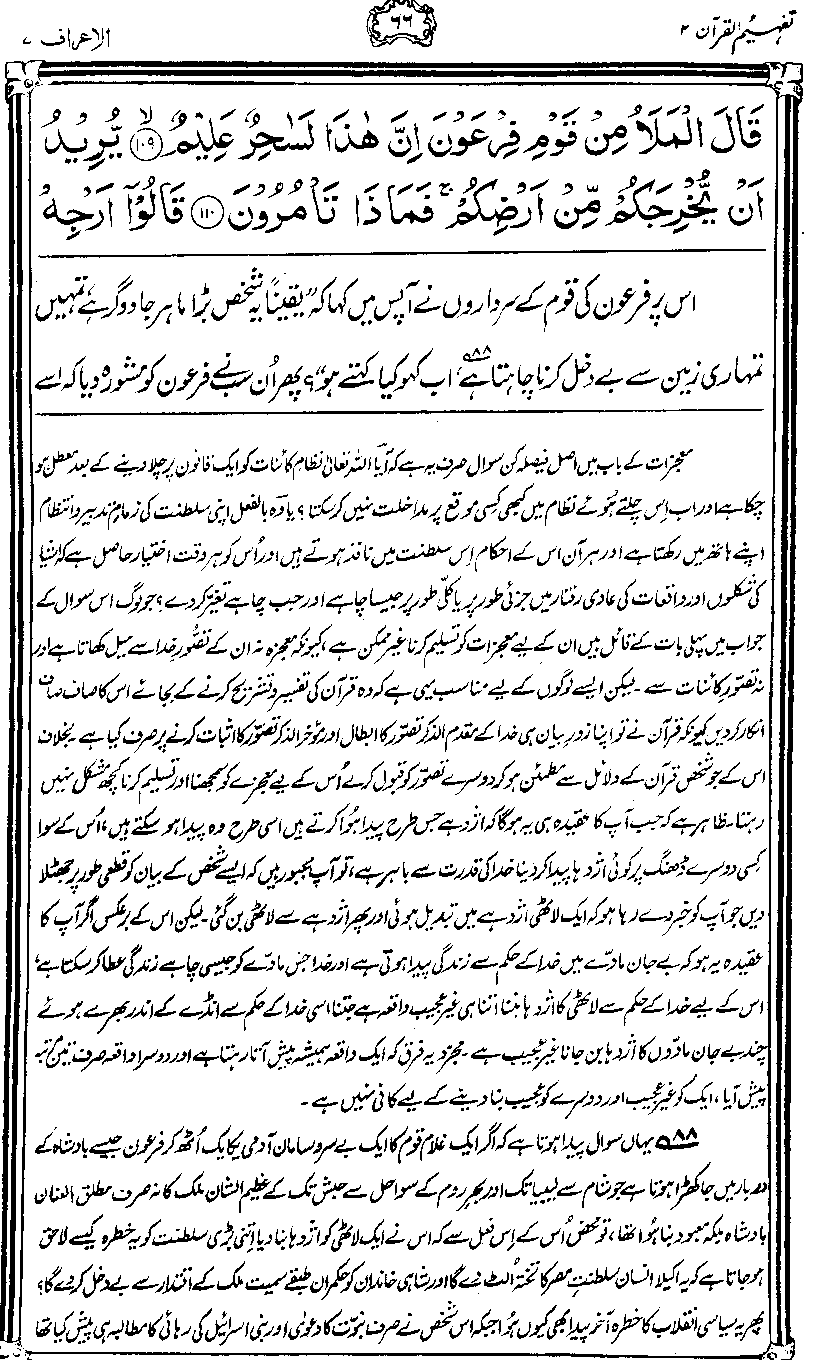 تفہیم القرآن ۲
۶۶
الاعراف ۷
قَالَ الْمَلَاُ مِنْ قَوْمِ فِرْعَوْنَ اِنَّ هٰذَا لَسٰحِرٌ عَلِيْمٌ ﴿۱۰۹﴾ يُّرِيْدُ
اَنْ يُّخْرِجَكُمْ مِّنْ اَرْضِكُمْ ۚ فَمَاذَا تَاْمُرُوْنَ ﴿۱۱۰﴾ قَالُوْٓا اَرْجِهْ
اس پر فرعون کی قوم کے سرداروں نے آپس میں کہا کہ ”یقیناً یہ شخص بڑا ماہر جادوگر ہے، تمہیں
تمہاری زمین سے بے دخل کرنا چاہتا ہے،۸۸ اب کہو کیا کہتے ہو“؟ پھر اُن سب نے فرعون کو مشورہ دیا کہ اسے
معجزات کے باب میں اصل فیصلہ کن سوال صرف یہ ہے کہ آیا اللہ تعالیٰ نظام کائنات کو ایک قانون پر چلا دینے کے بعد معطل ہو
چکا ہے اور اب اِس چلتے ہوئے نظام میں کبھی کسی موقع پر مداخلت نہیں کر سکتا؟ یا وہ بالفعل اپنی سلطنت کی زمامِ تدبیر و انتظام
اپنے ہاتھ میں رکھتا ہے اور ہر آن اس کے احکام اِس سلطنت میں نافذ ہوتے ہیں اور اُس کو ہر وقت اختیار حاصل ہے کہ اشیا
کی شکلوں اور واقعات کی عادی رفتار میں جزئی طور پر یا کلّی طور پر جیسا چاہے اور جب چاہے تغیّر کر دے؟ جو لوگ اس سوال کے
جواب میں پہلی بات کے قائل ہیں ان کے لیے معجزات کو تسلیم کرنا غیر ممکن ہے، کیونکہ معجزہ نہ ان کے تصوّرِ خدا سے میل کھاتا ہے اور
نہ تصوّرِ کائنات سے۔ لیکن ایسے لوگوں کے لیے مناسب یہی ہے کہ وہ قرآن کی تفسیر و تشریح کرنے کے بجائے اس کا صاف صاف
انکار کر دیں کیونکہ قرآن نے تو اپنا زورِ بیان ہی خدا کے مقدم الذکر تصوّر کا ابطال اور مؤخر الذکر تصوّر کا اثبات کرنے پر صرف کیا ہے۔ بخلاف
اس کے جو شخص قرآن کے دلائل سے مطمئن ہو کر دوسرے تصوّر کو قبول کرلے اُس کے لیے معجزے کو سمجھنا اور تسلیم کرنا کچھ مشکل نہیں
رہتا۔ ظاہر ہے کہ جب آپ کا عقیدہ ہی یہ ہوگا کہ اژدہے جس طرح پیدا ہُوا کرتے ہیں اسی طرح وہ پیدا ہو سکتے ہیں، اُس کے سوا
کسی دوسرے ڈھنگ پر کوئی اژدہا پیدا کر دینا خدا کی قدرت سے باہر ہے، تو آپ مجبور ہیں کہ ایسے شخص کے بیان کو قطعی طور پر جھٹلا
دیں جو آپ کو خبر دے رہا ہو کہ ایک لاٹھی اژدہے میں تبدیل ہوئی اور پھر اژدہے سے لاٹھی بن گئی۔ لیکن اس کے برعکس اگر آپ کا
عقیدہ یہ ہو کہ بے جان مادّے میں خدا کے حکم سے زندگی پیدا ہوتی ہے اور خدا جس مادّے کو جیسی چاہے زندگی عطا کر سکتا ہے،
اس کے لیے خدا کے حکم سے لاٹھی کا اژدہا بننا اتنا ہی غیر عجیب واقعہ ہے جتنا اسی خدا کے حکم سے انڈے کے اندر بھرے ہوئے
چند بے جان مادّوں کا اژدہا بن جانا غیر عجیب ہے۔ مجرد یہ فرق کہ ایک واقعہ ہمیشہ پیش آتا رہتا ہے اور دوسرا واقعہ صرف تین مرتبہ
پیش آیا، ایک کو غیر عجیب اور دوسرے کو عجیب بنا دینے کے لیے کافی نہیں ہے۔
۸۸ یہاں سوال پیدا ہوتا ہے کہ اگر ایک غلام قوم کا ایک بے سروسامان آدمی یکایک اُٹھ کر فرعون جیسے بادشاہ کے
دربار میں جا کھڑا ہوتا ہے جو شام سے لیبیا تک اور بحرِ روم کے سواحل سے حبش تک کے عظیم الشان ملک کا نہ صرف مطلق العنان
بادشاہ بلکہ معبود بنا ہُوا تھا، تو محض اُس کے اِس فعل سے کہ اس نے ایک لاٹھی کو اژدہا بنا دیا اِتنی بڑی سلطنت کو یہ خطرہ کیسے لاحق
ہو جاتا ہے کہ یہ اکیلا انسان سلطنتِ مصر کا تختہ اُلٹ دے گا اور شاہی خاندان کو حکمران طبقے سمیت ملک کے اقتدار سے بے دخل کر دے گا؟
پھر یہ سیاسی انقلاب کا خطرہ آخر پیدا بھی کیوں ہُوا جبکہ اس شخص نے صرف نبوّت کا دعویٰ اور بنی اسرائیل کی رہائی کا مطالبہ ہی پیش کیا تھا